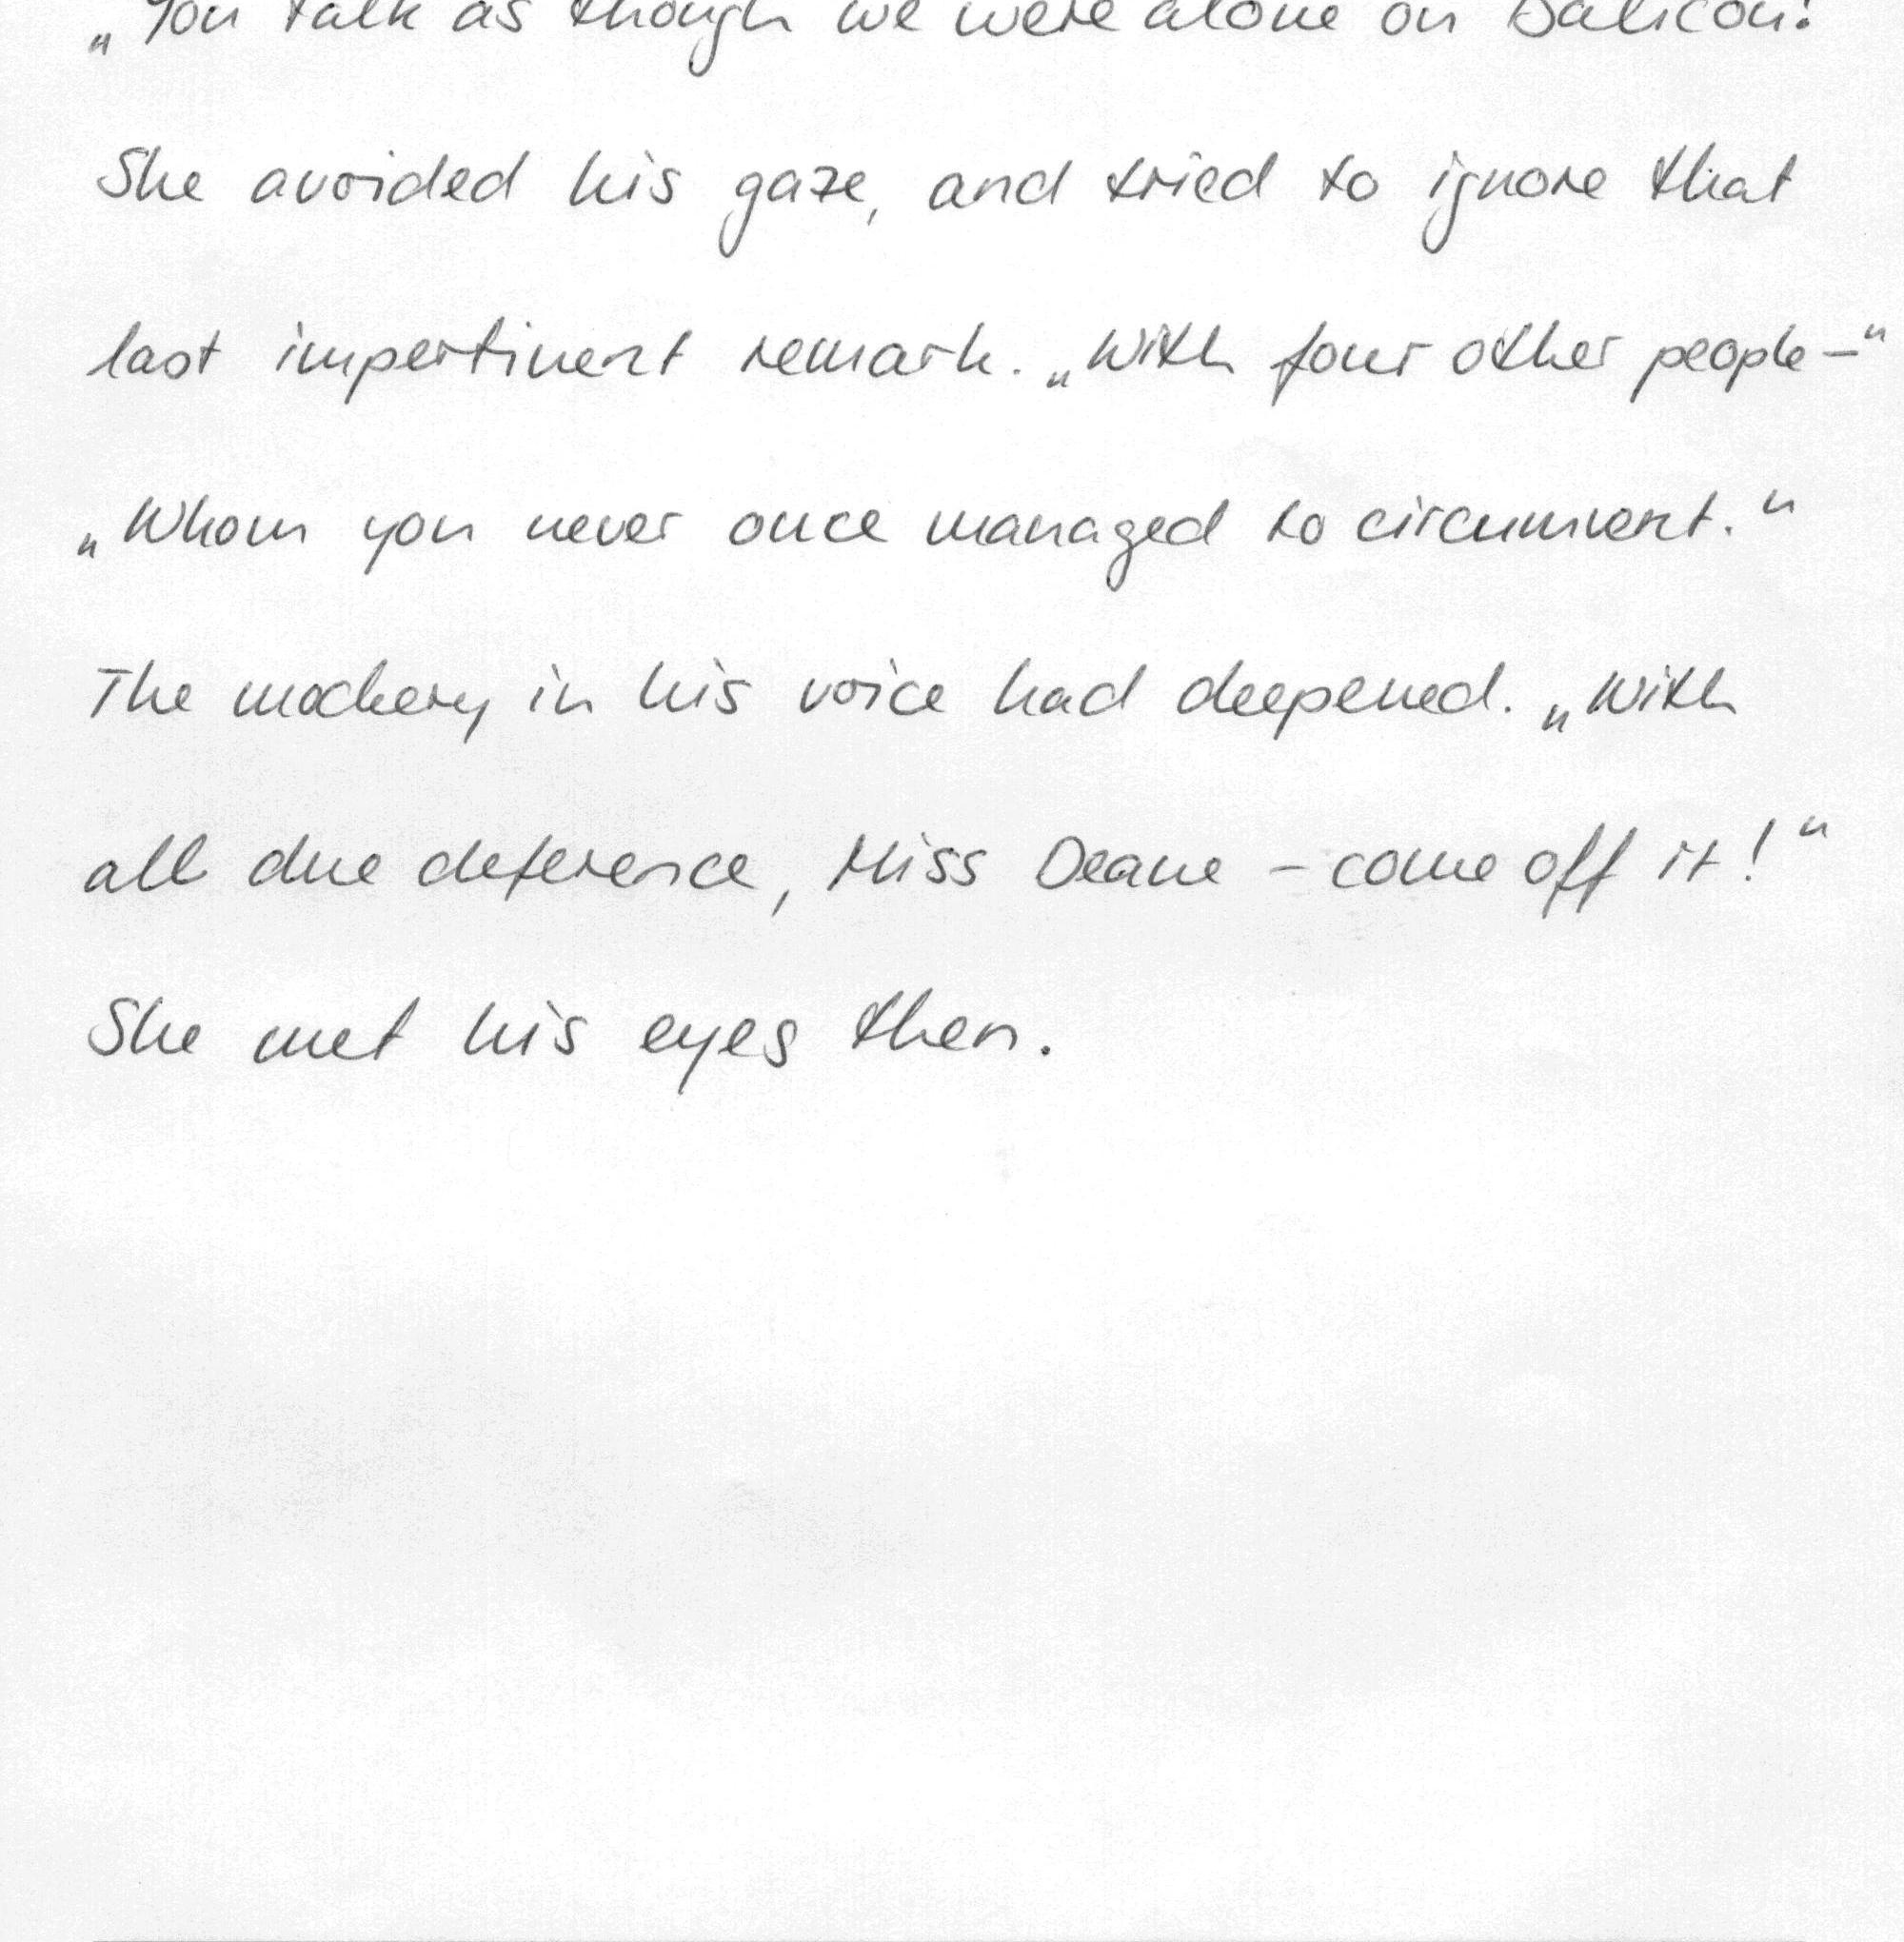 „You talk as though we were alone on Salicon!
She avoided his gaze, and tried to ignore that
last impertinent remark. „With four other people–“
„Whom you never once managed to circumvent.“
The mockery in his voice had deepened. „With
all due deference, Miss Deane – come off it!“
She met his eyes then.